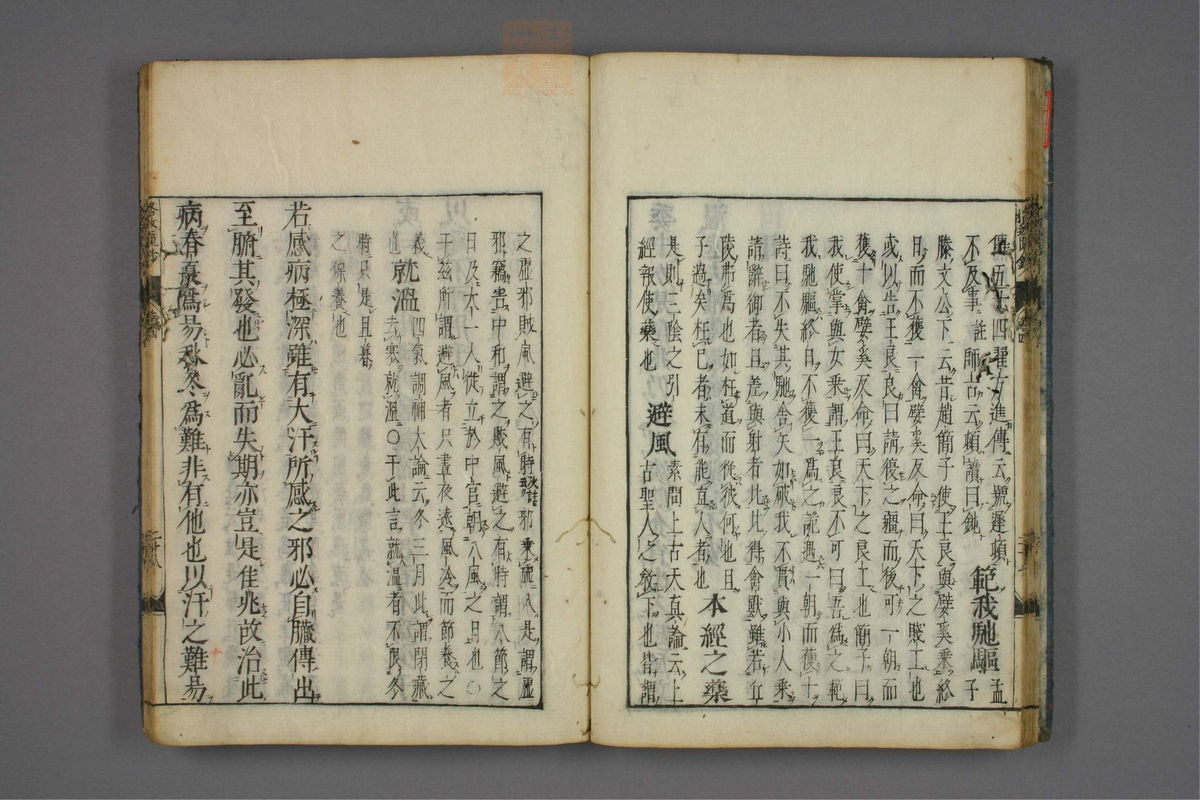 傳五十四翟方進傳云號遲頓
不及事註師古云頓讀曰鈍 範我馳驅 孟子
滕文公下云昔趙簡子使王良與嬖奚乘終
日而不獲一禽嬖奚反命曰天下之賤工也
或以告王良良曰請復之彊而後可一朝而
獲十禽嬖奚反命曰天下之良工也簡子曰
我使掌與女乘謂王良良不可曰吾爲之範
我馳驅終日不獲一爲之詭遇一朝而獲十
詩曰不失其馳舍矢如破我不貫與小人乘
請辭御者且羞與射者比比得禽獸雖若丘
陵弗爲也如枉道而從彼何也且
子過矣枉已者未有能直人者也 本經之藥
是則三陰之引
經報使藥也 避風 素問上古天真論云上
古聖人之教下也皆謂
之虛邪賊風避之有時次註云邪乘虛入是謂虛
邪竊害中和謂之賊風避之有時謂八節之
日及太一入徙立於中宮朝八風之日也○
于茲所謂避風者只晝夜遠風冷而節養之
義也 就溫 四氣調神大論云冬三月此謂閉藏
去寒就溫○于此言就溫者不良冬
時只是且暮
之保養也
若感病極深雖有大汗所感之邪必自臟傳出
至腑其發也必亂而失期亦豈是佳兆故治此
病春夏爲易秋冬爲難非有他也以汗之難易